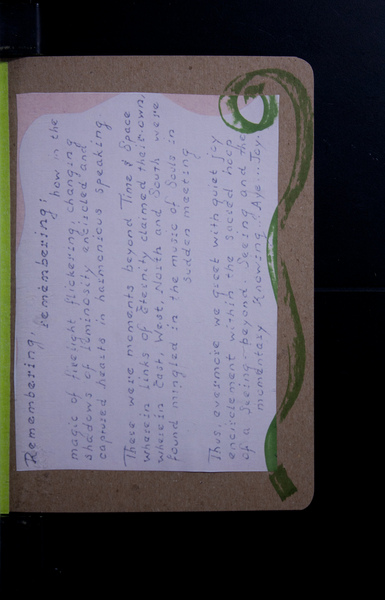 Remembering, remembering: how in the
magic of firelight flickering, changing
shadows of luminosity encircled and
captured hearts in harmonious speaking.
There were moments beyond Time & Space
wherein links of Eternity claimed their own,
wherein East, West, North and South were
found mingled in the music of Souls in
sudden meeting
Thus, evermore we greet with quiet joy
encirclement within the sacred hoop
of a Seeing beyond Seeing and the
momentary Knowing. Aye... Joy.